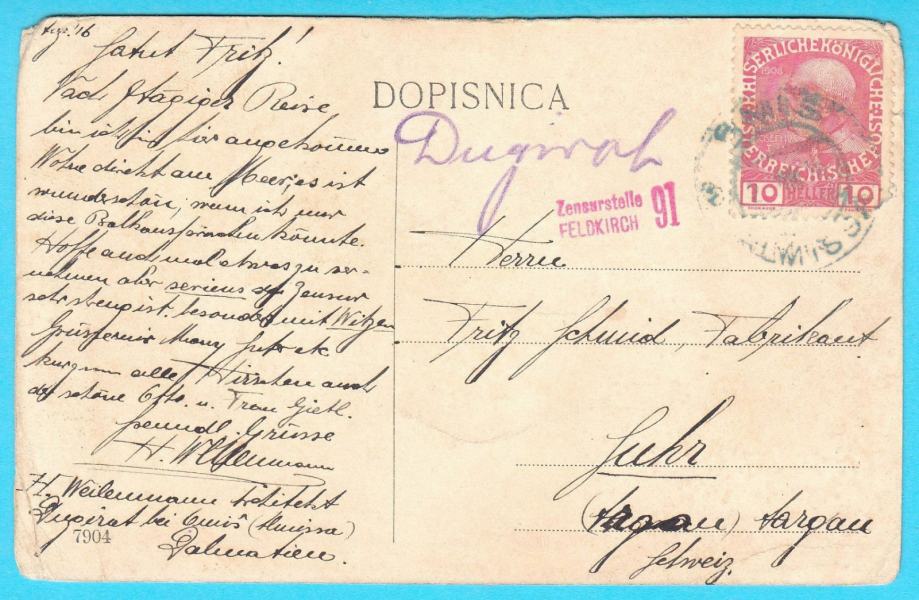 Aug. 16
Salut Fritz!
Nach 4tägiger Reise
bin ich hier angekommen
Wohne direkt am Meer, es ist
wunderschön, wenn ich nur
diese Balkansprachen könnte.
Hoffe auch mal etwas zu ver-
nehmen aber seriens da Zensur
sehr streng ist. besonders mit Witzen
Grüsse mir
kurzum alle Hirschen auch
der schöne Otto. u. Frau Gietl.
freundl. Grüsse
H. Weilenmann
H. Weilenmann Architekt
Dugirat bei Omiš (Almissa)
Dalmatien.
7904
DOPISNICA
Dugirat
Zensurstelle
FELDKIRCH 91
KAISERLICHEKÖNIGLICHE
ÖSTERREICHISCHE POST
1908
10 HELLER 10
Herrn
Fritz Schmid, Fabrikant
Suhr
(Argau) Aargau
Schweiz.